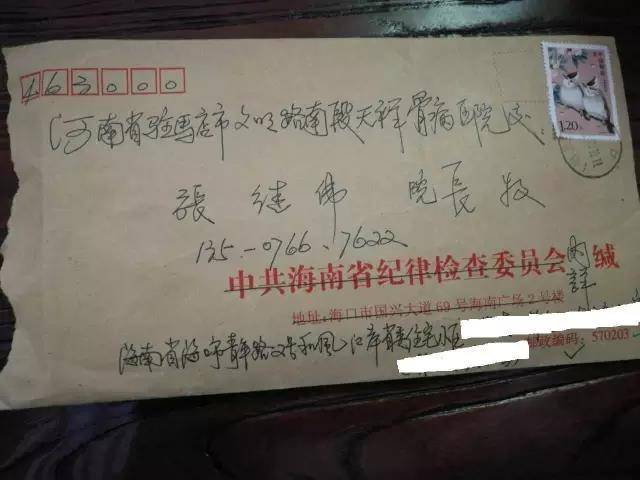 463000
1.20
河南省驻馬店市文明路南段天祥骨病医院 交:
張继伟 院長 收
135-0766-7622
中共海南省纪律检查委员会 缄
内詳
地址:海口市国兴大道69号海南广场2号楼
邮政编码:570203
海南省海口市青年路